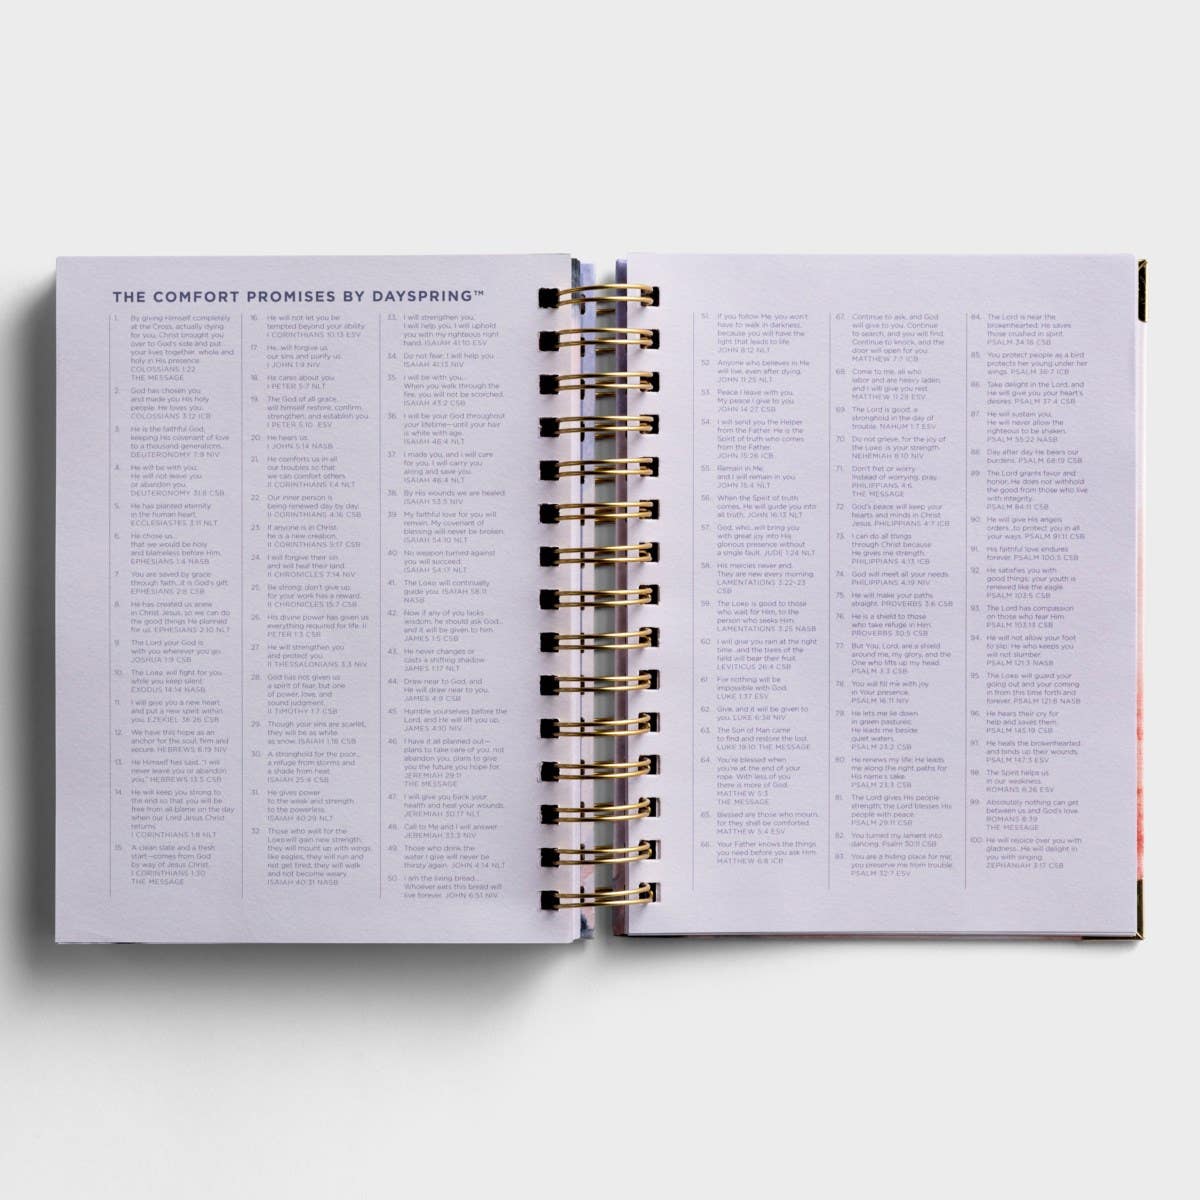 THE COMFORT PROMISES BY DAYSPRING™
1. By giving Himself completely
at the Cross, actually dying
for you, Christ brought you
over to God's side and put
your lives together, whole and
holy in His presence.
COLOSSIANS 1:22
THE MESSAGE
2. God has chosen you
and made you His holy
people. He loves you.
COLOSSIANS 3:12 ICB
3. He is the faithful God,
keeping His covenant of love
to a thousand generations...
DEUTERONOMY 7:9 NIV
4. He will be with you;
He will not leave you
or abandon you.
DEUTERONOMY 31:8 CSB
5. He has planted eternity
in the human heart.
ECCLESIASTES 3:11 NLT
6. He chose us...
that we would be holy
and blameless before Him.
EPHESIANS 1:4 NASB
7. You are saved by grace
through faith...it is God's gift.
EPHESIANS 2:8 CSB
8. He has created us anew
in Christ Jesus, so we can do
the good things He planned
for us. EPHESIANS 2:10 NLT
9. The Lord your God is
with you wherever you go.
JOSHUA 1:9 CSB
10. The LORD will fight for you
while you keep silent.
EXODUS 14:14 NASB
11. I will give you a new heart
and put a new spirit within
you. EZEKIEL 36:26 CSB
12. We have this hope as an
anchor for the soul, firm and
secure. HEBREWS 6:19 NIV
13. He Himself has said, "I will
never leave you or abandon
you." HEBREWS 13:5 CSB
14. He will keep you strong to
the end so that you will be
free from all blame on the day
when our Lord Jesus Christ
returns.
I CORINTHIANS 1:8 NLT
15. A clean slate and a fresh
start—comes from God
by way of Jesus Christ.
I CORINTHIANS 1:30
THE MESSAGE
16. He will not let you be
tempted beyond your ability.
I CORINTHIANS 10:13 ESV
17. He...will forgive us
our sins and purify us.
I JOHN 1:9 NIV
18. He cares about you.
I PETER 5:7 NLT
19. The God of all grace,
will himself restore, confirm,
strengthen, and establish you.
I PETER 5:10 ESV
20. He hears us.
I JOHN 5:14 NASB
21. He comforts us in all
our troubles so that
we can comfort others.
II CORINTHIANS 1:4 NLT
22. Our inner person is
being renewed day by day.
II CORINTHIANS 4:16 CSB
23. If anyone is in Christ,
he is a new creation.
II CORINTHIANS 5:17 CSB
24. I will forgive their sin
and will heal their land.
II CHRONICLES 7:14 NIV
25. Be strong; don't give up,
for your work has a reward.
II CHRONICLES 15:7 CSB
26. His divine power has given us
everything required for life. II
PETER 1:3 CSB
27. He will strengthen you
and protect you.
II THESSALONIANS 3:3 NIV
28. God has not given us
a spirit of fear, but one
of power, love, and
sound judgment.
II TIMOTHY 1:7 CSB
29. Though your sins are scarlet,
they will be as white
as snow. ISAIAH 1:18 CSB
30. A stronghold for the poor...
a refuge from storms and
a shade from heat.
ISAIAH 25:4 CSB
31. He gives power
to the weak and strength
to the powerless.
ISAIAH 40:29 NLT
32. Those who wait for the
LORD will gain new strength;
they will mount up with wings
like eagles, they will run and
not get tired, they will walk
and not become weary.
ISAIAH 40:31 NASB
33. I will strengthen you,
I will help you, I will uphold
you with my righteous right
hand. ISAIAH 41:10 ESV
34. Do not fear; I will help you.
ISAIAH 41:13 NIV
35. I will be with you...
When you walk through the
fire, you will not be scorched.
ISAIAH 43:2 CSB
36. I will be your God throughout
your lifetime—until your hair
is white with age.
ISAIAH 46:4 NLT
37. I made you, and I will care
for you. I will carry you
along and save you.
ISAIAH 46:4 NLT
38. By His wounds we are healed.
ISAIAH 53:5 NIV
39. My faithful love for you will
remain. My covenant of
blessing will never be broken.
ISAIAH 54:10 NLT
40. No weapon turned against
you will succeed.
ISAIAH 54:17 NLT
41. The LORD will continually
guide you. ISAIAH 58:11
NASB
42. Now if any of you lacks
wisdom, he should ask God...
and it will be given to him.
JAMES 1:5 CSB
43. He never changes or
casts a shifting shadow.
JAMES 1:17 NLT
44. Draw near to God, and
He will draw near to you.
JAMES 4:8 CSB
45. Humble yourselves before the
Lord, and He will lift you up.
JAMES 4:10 NIV
46. I have it all planned out—
plans to take care of you, not
abandon you, plans to give
you the future you hope for.
JEREMIAH 29:11
THE MESSAGE
47. I will give you back your
health and heal your wounds.
JEREMIAH 30:17 NLT
48. Call to Me and I will answer.
JEREMIAH 33:3 NIV
49. Those who drink the
water I give will never be
thirsty again. JOHN 4:14 NLT
50. I am the living bread...
Whoever eats this bread will
live forever. JOHN 6:51 NIV
51. If you follow Me, you won't
have to walk in darkness,
because you will have the
light that leads to life.
JOHN 8:12 NLT
52. Anyone who believes in Me
will live, even after dying.
JOHN 11:25 NLT
53. Peace I leave with you.
My peace I give to you.
JOHN 14:27 CSB
54. I will send you the Helper
from the Father. He is the
Spirit of truth who comes
from the Father.
JOHN 15:26 ICB
55. Remain in Me,
and I will remain in you.
JOHN 15:4 NLT
56. When the Spirit of truth
comes, He will guide you into
all truth. JOHN 16:13 NLT
57. God, who...will bring you
with great joy into His
glorious presence without
a single fault. JUDE 1:24 NLT
58. His mercies never end.
They are new every morning.
LAMENTATIONS 3:22-23
CSB
59. The LORD is good to those
who wait for Him, to the
person who seeks Him.
LAMENTATIONS 3:25 NASB
60. I will give you rain at the right
time...and the trees of the
field will bear their fruit.
LEVITICUS 26:4 CSB
61. For nothing will be
impossible with God.
LUKE 1:37 ESV
62. Give, and it will be given to
you. LUKE 6:38 NIV
63. The Son of Man came
to find and restore the lost.
LUKE 19:10 THE MESSAGE
64. You're blessed when
you're at the end of your
rope. With less of you
there is more of God.
MATTHEW 5:3
THE MESSAGE
65. Blessed are those who mourn,
for they shall be comforted.
MATTHEW 5:4 ESV
66. Your Father knows the things
you need before you ask Him.
MATTHEW 6:8 ICB
67. Continue to ask, and God
will give to you. Continue
to search, and you will find.
Continue to knock, and the
door will open for you.
MATTHEW 7:7 ICB
68. Come to me, all who
labor and are heavy laden,
and I will give you rest.
MATTHEW 11:28 ESV
69. The Lord is good, a
stronghold in the day of
trouble. NAHUM 1:7 ESV
70. Do not grieve, for the joy of
the LORD is your strength.
NEHEMIAH 8:10 NIV
71. Don't fret or worry.
Instead of worrying, pray.
PHILIPPIANS 4:6
THE MESSAGE
72. God's peace will keep your
hearts and minds in Christ
Jesus. PHILIPPIANS 4:7 ICB
73. I can do all things
through Christ because
He gives me strength.
PHILIPPIANS 4:13 ICB
74. God will meet all your needs.
PHILIPPIANS 4:19 NIV
75. He will make your paths
straight. PROVERBS 3:6 CSB
76. He is a shield to those
who take refuge in Him.
PROVERBS 30:5 CSB
77. But You, Lord, are a shield
around me, my glory, and the
One who lifts up my head.
PSALM 3:3 CSB
78. You will fill me with joy
in Your presence.
PSALM 16:11 NIV
79. He lets me lie down
in green pastures;
He leads me beside
quiet waters.
PSALM 23:2 CSB
80. He renews my life; He leads
me along the right paths for
His name's sake.
PSALM 23:3 CSB
81. The Lord gives His people
strength; the Lord blesses His
people with peace.
PSALM 29:11 CSB
82. You turned my lament into
dancing. Psalm 30:11 CSB
83. You are a hiding place for me;
you preserve me from trouble.
PSALM 32:7 ESV
84. The Lord is near the
brokenhearted; He saves
those crushed in spirit.
PSALM 34:18 CSB
85. You protect people as a bird
protects her young under her
wings. PSALM 36:7 ICB
86. Take delight in the Lord, and
He will give you your heart's
desires. PSALM 37:4 CSB
87. He will sustain you;
He will never allow the
righteous to be shaken.
PSALM 55:22 NASB
88. Day after day He bears our
burdens. PSALM 68:19 CSB
89. The Lord grants favor and
honor; He does not withhold
the good from those who live
with integrity.
PSALM 84:11 CSB
90. He will give His angels
orders...to protect you in all
your ways. PSALM 91:11 CSB
91. His faithful love endures
forever. PSALM 100:5 CSB
92. He satisfies you with
good things; your youth is
renewed like the eagle.
PSALM 103:5 CSB
93. The Lord has compassion
on those who fear Him.
PSALM 103:13 CSB
94. He will not allow your foot
to slip; He who keeps you
will not slumber.
PSALM 121:3 NASB
95. The LORD will guard your
going out and your coming
in from this time forth and
forever. PSALM 121:8 NASB
96. He hears their cry for
help and saves them.
PSALM 145:19 CSB
97. He heals the brokenhearted
and binds up their wounds.
PSALM 147:3 ESV
98. The Spirit helps us
in our weakness.
ROMANS 8:26 ESV
99. Absolutely nothing can get
between us and God's love.
ROMANS 8:39
THE MESSAGE
100. He will rejoice over you with
gladness...He will delight in
you with singing.
ZEPHANIAH 3:17 CSB